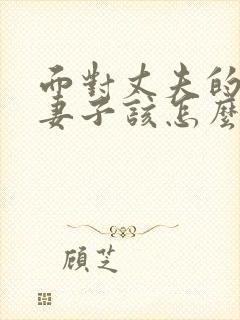 而對丈夫的
妻子該怎麼
顧芝